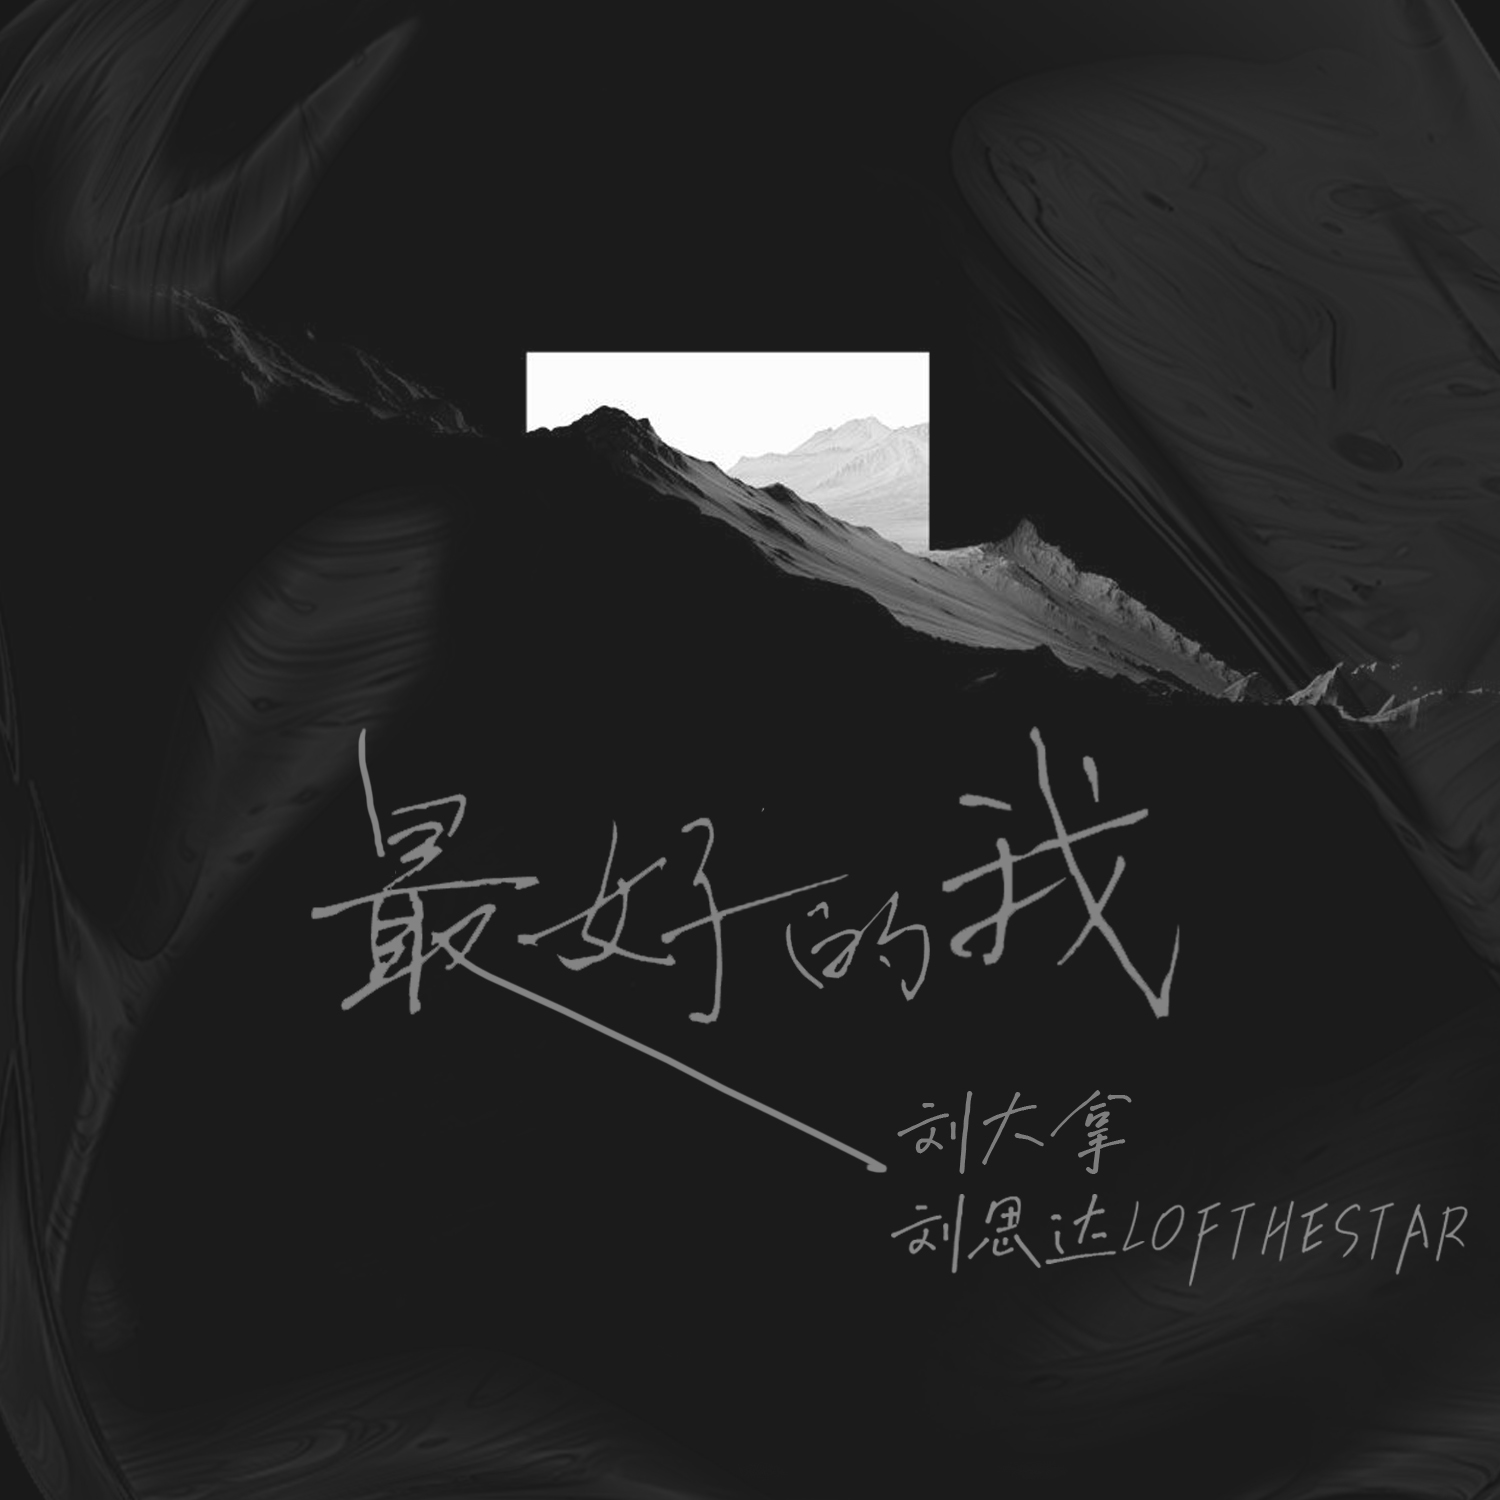 最好的我
刘大拿
刘思达LOFTHESTAR